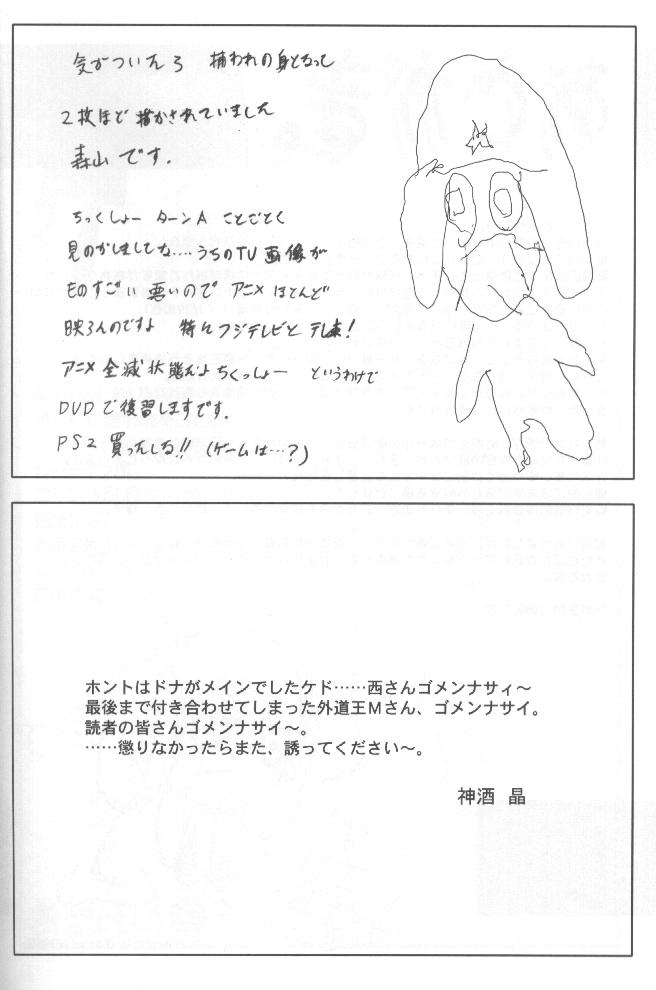 気がついたら 捕われの身となって
2枚ほど描かされていました
森山です.
ちっくしょー ターンA ことごとく
見のがしましてな.... うちのTV 画像が
ものすごい悪いので アニメ ほとんど
映らんのですよ 特に フジテレビと テレ東!
アニメ 全滅状態だよ ちくっしょー というわけで
DVDで復習しますです.
PS2 買ったしな!! (ゲームは…?)
ホントはドナがメインでしたケド……西さんゴメンナサィ～
最後まで付き合わせてしまった外道王Mさん、ゴメンナサイ。
読者の皆さんゴメンナサイ～。
……懲りなかったらまた、誘ってください～。
神酒 晶